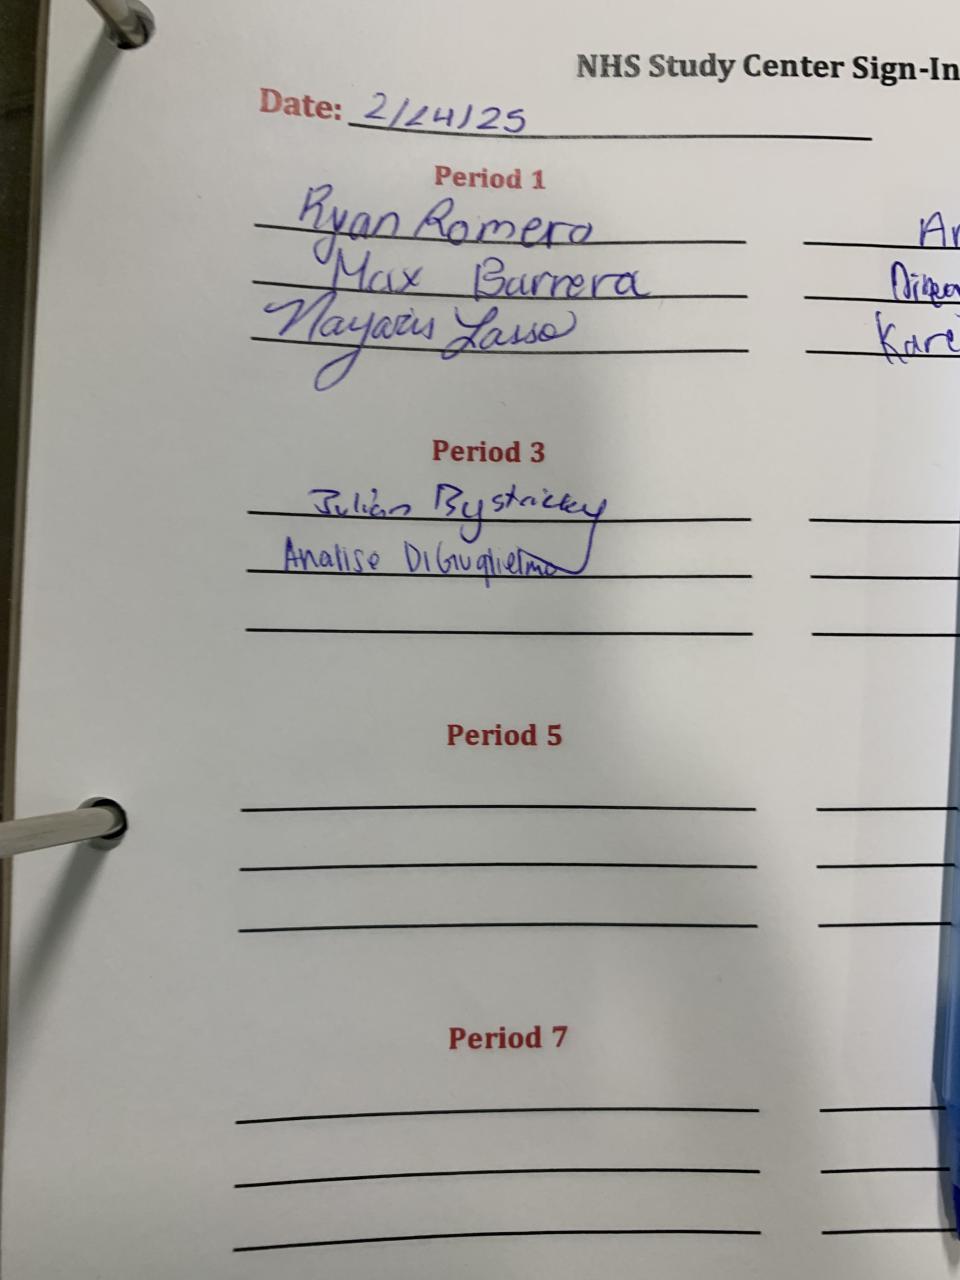 NHS Study Center Sign-In
Date: 2/24/25
Period 1
Ryan Romero
Max Barrera
Nayaris Lasso
Ar
Kare
Period 3
Julian Bystricky
Analise DiGiuglielmo
Period 5
Period 7